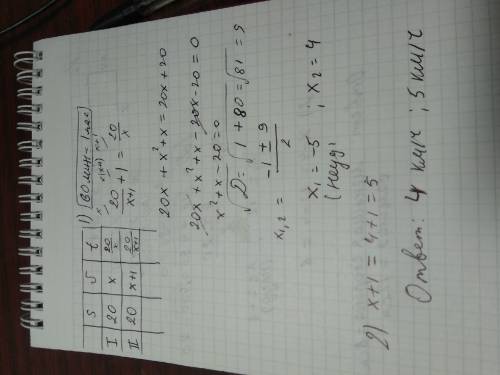 S V t
I 20 x 20/x
II 20 x+1 20/(x+1)
1) 60 мин = 1 час
20/(x+1) + 1 = 20/x
20x + x² + x = 20x + 20
20x + x² + x - 20x - 20 = 0
x² + x - 20 = 0
√D = √1 + 80 = √81 = 9
x₁,₂ = (-1 ± 9)/2
x₁ = -5 ; x₂ = 4
(неуд)
2) x + 1 = 4 + 1 = 5
Ответ: 4 км/ч ; 5 км/ч